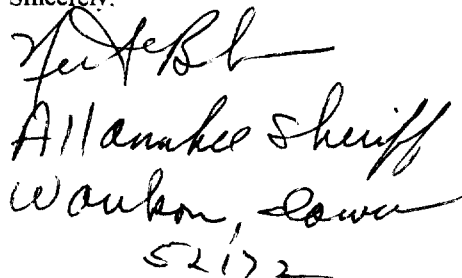 Sincerely.
Allamakee Sheriff
Waukon, Iowa
52172